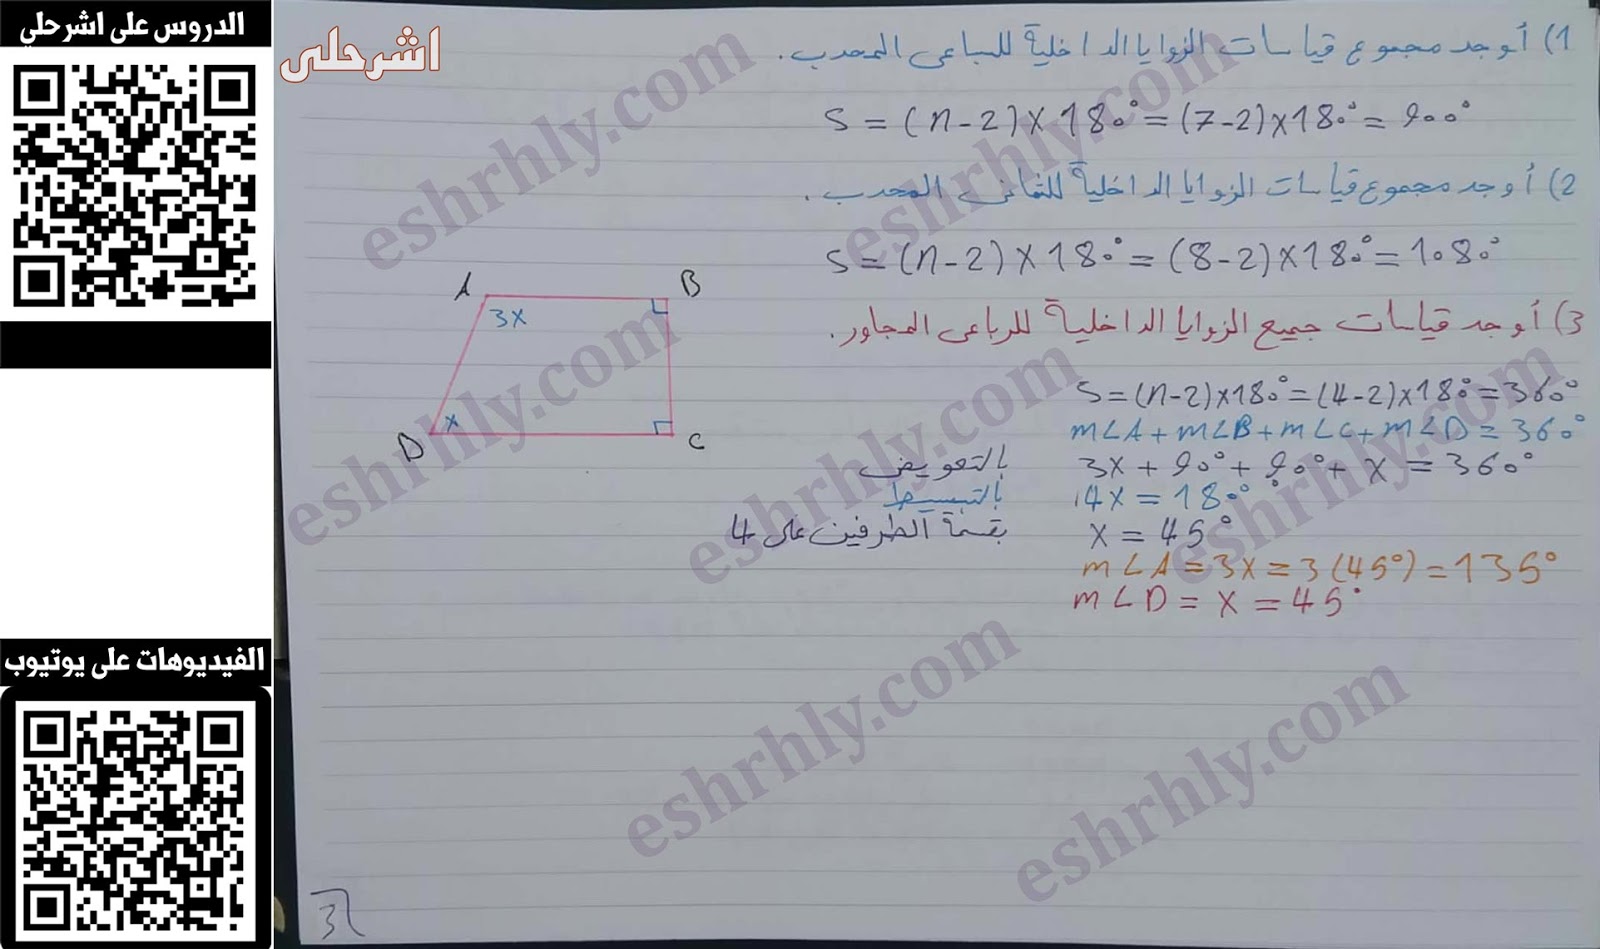 الدروس على اشرحلي
اشرحلى
1) أوجد مجموع قياسات الزوايا الداخلية للسباعى المحدب.
S = (n-2) × 180° = (7-2) × 180° = 900°
2) أوجد مجموع قياسات الزوايا الداخلية للثمانى المحدب.
S = (n-2) × 180° = (8-2) × 180° = 1080°
3) أوجد قياسات جميع الزوايا الداخلية للرباعى المجاور.
A
B
3x
x
D
C
S = (n-2) × 180° = (4-2) × 180° = 360°
m∠A + m∠B + m∠C + m∠D = 360°
3x + 90° + 90° + x = 360° بالتعويض
4x = 180° بالتبسيط
x = 45° بقسمة الطرفين على 4
m∠A = 3x = 3(45°) = 135°
m∠D = x = 45°
الفيديوهات على يوتيوب
3
eshrhly.com
eshrhly.com
eshrhly.com
eshrhly.com
eshrhly.com
eshrhly.com
eshrhly.com